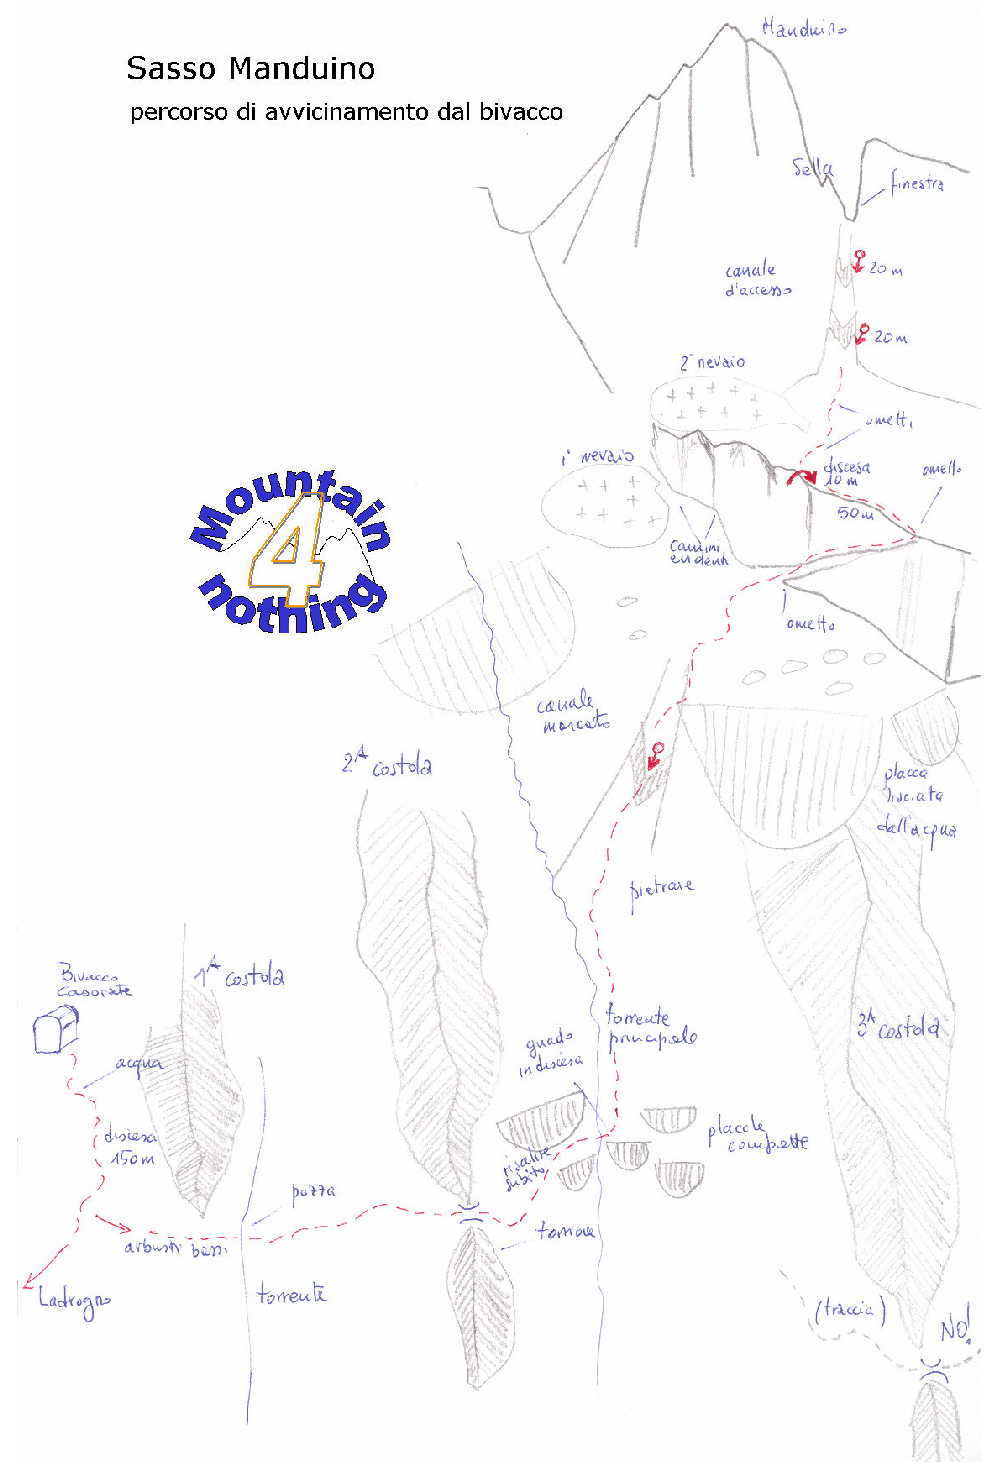 Sasso Manduino
percorso di avvicinamento dal bivacco
Manduino
Sella
finestra
canale
d'accesso
20 m
20 m
2° nevaio
ometti
1° nevaio
discesa
10 m
ometto
50 m
camini
evidenti
ometto
Mountain
4
nothing
canale
marcato
2ᴬ costola
placca
lisciata
dall'acqua
pietraie
Bivacco
Casorate
1ᴬ costola
acqua
torrente
principale
guado
in discesa
3ᴬ costola
discesa
150 m
placche
compatte
risalire
subito
pozza
arbusti bassi
Ladrogno
torrente
(traccia)
NO!